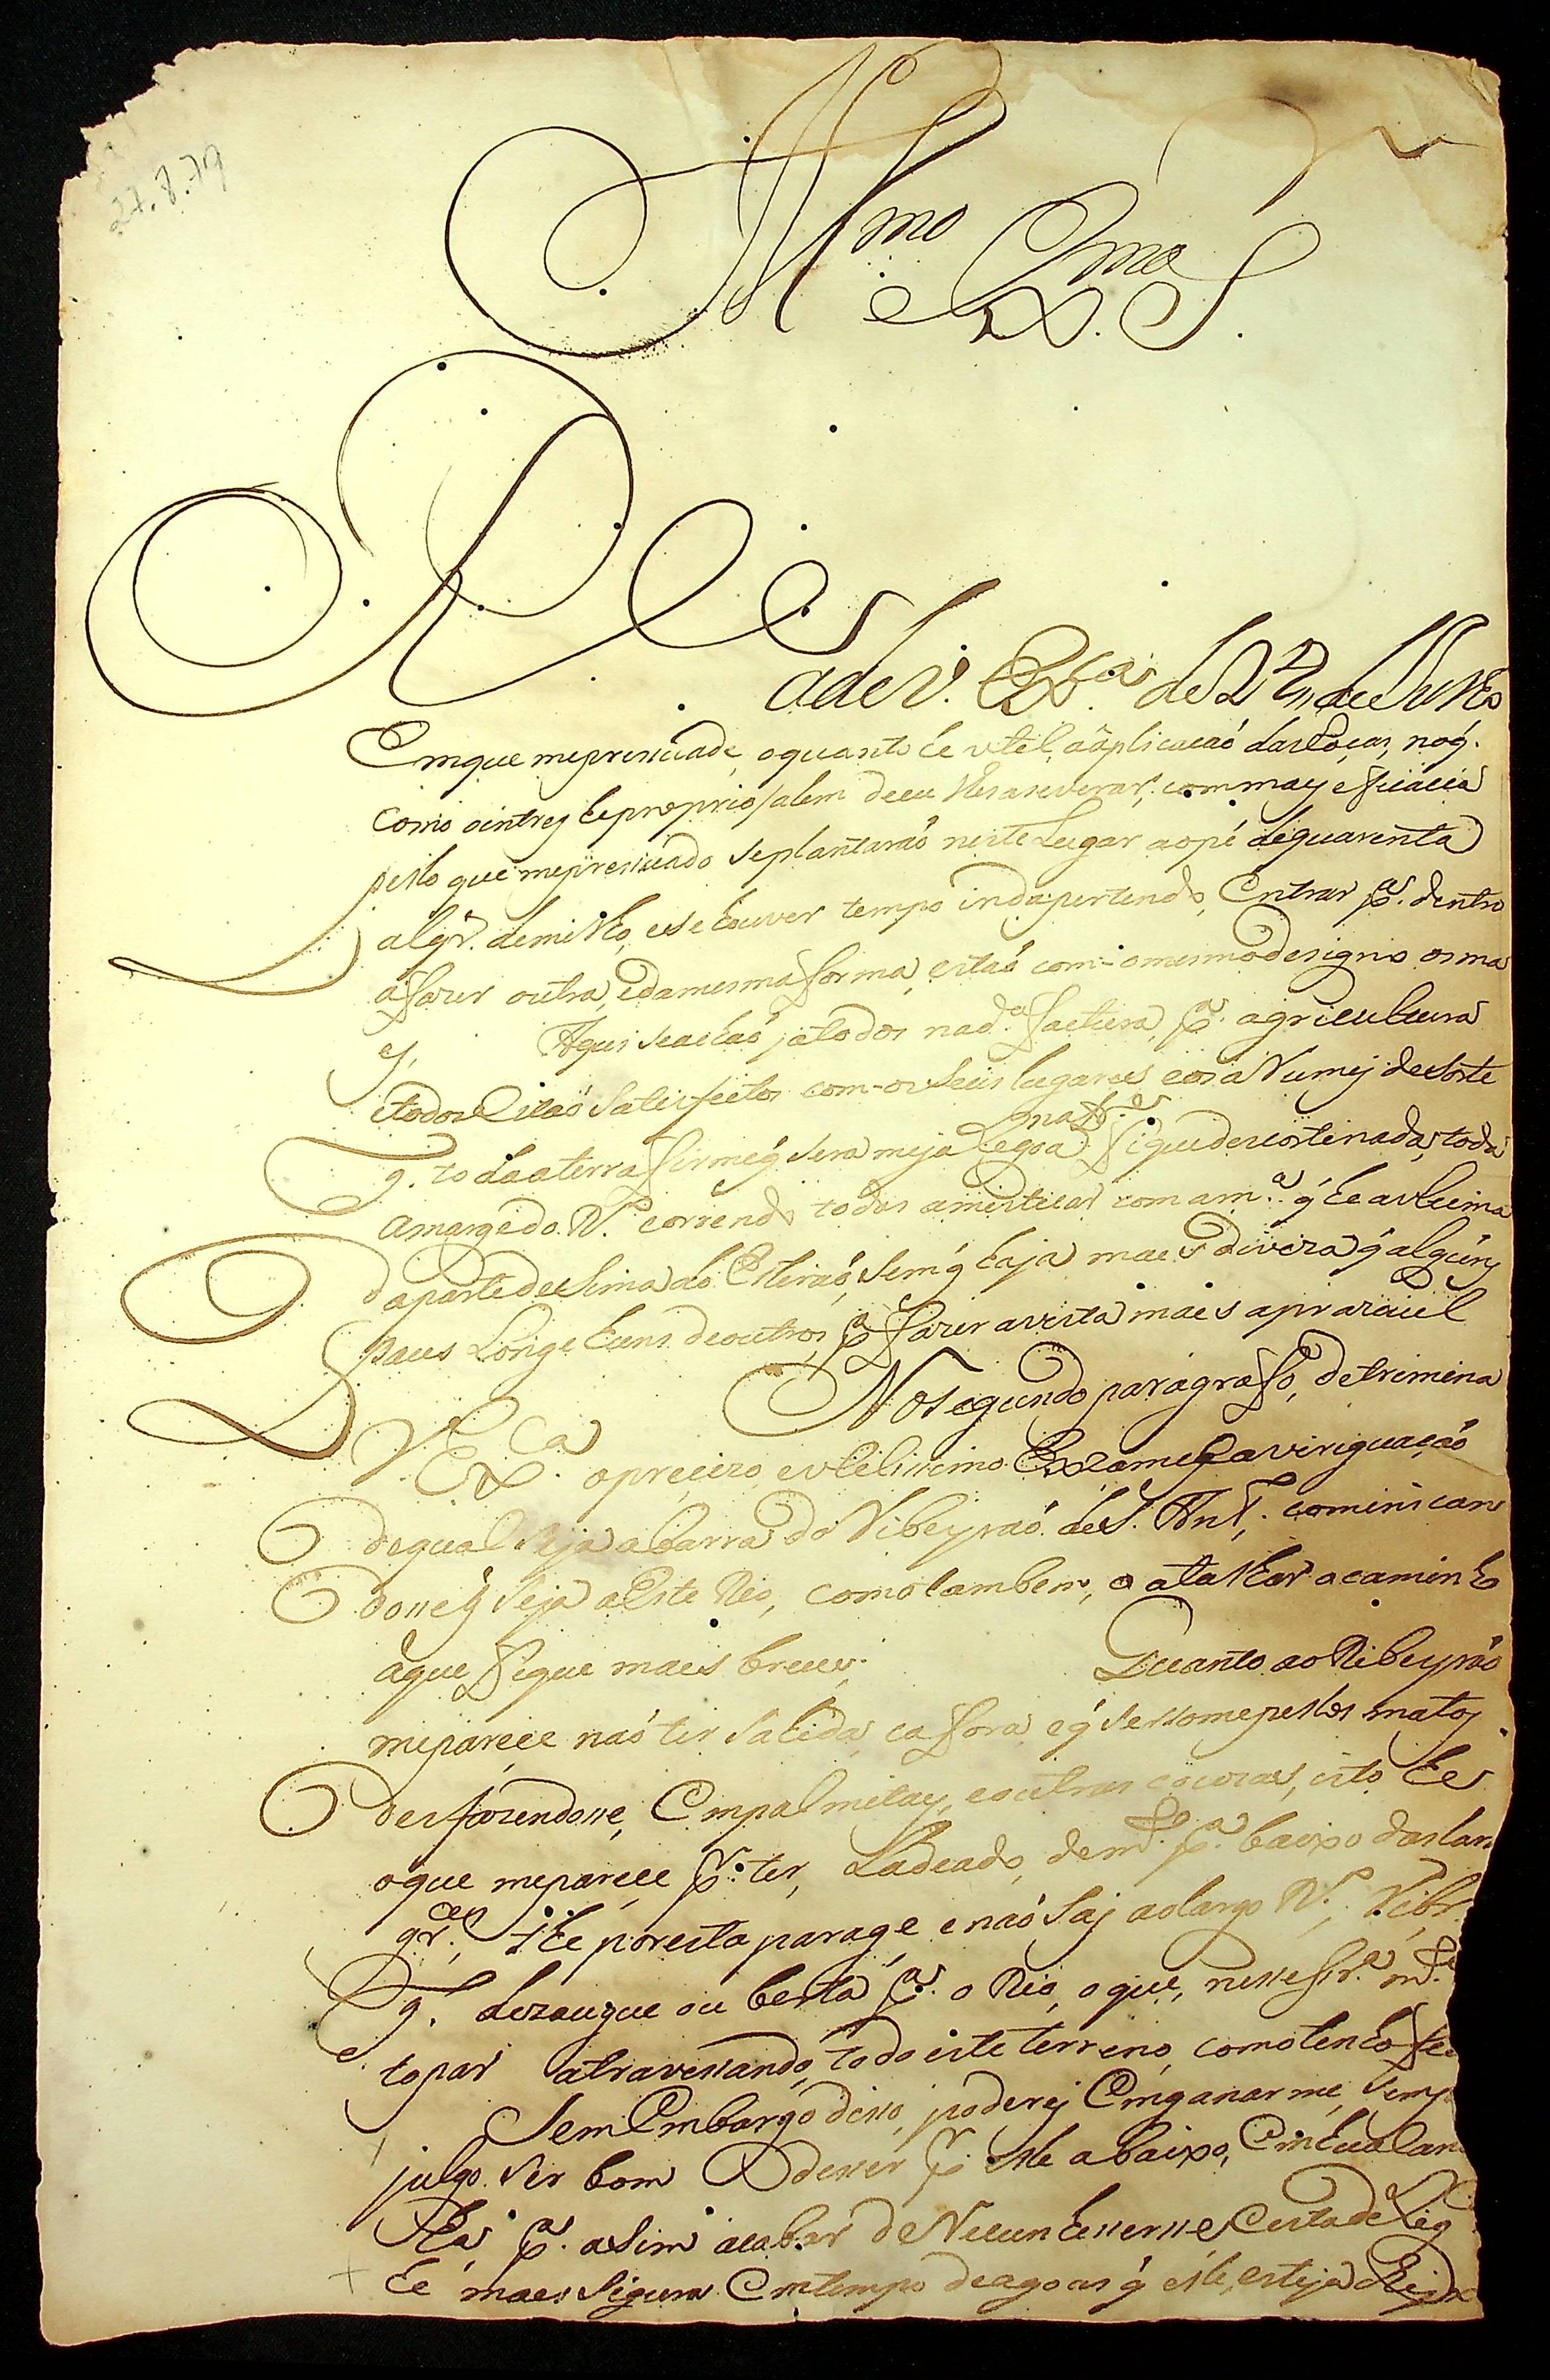 27.8.79
Illmo e Exmo S.
Rec
a de V. Exca de 27 de Julho
Em que me presuade, o quanto he util, a aplicacaõ das Roças, no q.
como o intrej he proprio / alem de eu lhes aseverar, com may eficacia
pello que me presuado se plantaraõ neste Lugar ao pé de quarenta
alqr. de milho, e se houver tempo inda pertendo, Entrar pa. dentro
a fazer outra, e da mesma forma, estaõ com o mesmo designio os ma
ej. Aqui se achaõ ja todos na da. factura, pa. agricultura
e todos Estaõ satisfeitos com os seus lugares, e os a Rumej de sorte
q. toda a terra firme q́ sera meja Legoa fique descortinada, toda
a marge do R.o correndo todos a mistica com a ma. q́ he a ultima
da parte de sima do Estiraõ, sem q́ haja maes diviza q́ alguns
paus Longe huns de outros, pa. fazer a vista mais aprazivel
No segundo paragrafo, detrimina
V Exca. o precizo, e utelissimo Exzame, e aviriguaçaõ
de qual seja a barra do Ribeyraõ de S. Ant.o cominican
dosse q́ seja a Este Rio, como tambem, o atalhar a caminho
a que fique mais breve. Quanto ao Ribeyraõ
me parece naõ ter sahida, ca fora, e q́ se some pellos matos
desfazendosse, Em palmitaes, e outras couzas, isto he
o que me parece pr. ter, Ladeado, de md.o pa. baixo das lar
gr. the por esta parage e naõ saj ao largo R.o, Ribr.
q. dezaugue ou berta pa. o Rio, o que, nessesr.a md.e
topar atravessando, todo este terreno, como tenho fe
Sem Embargo disso, poderej Emganarme, semp
julgo ser bom desser pr. elle abaixo, Em hua can
Rea, pa. asim acabar de Recunhesserse Esta de Lig
he maes sigura Em tempo de agoas q́ elle, esteja chejo